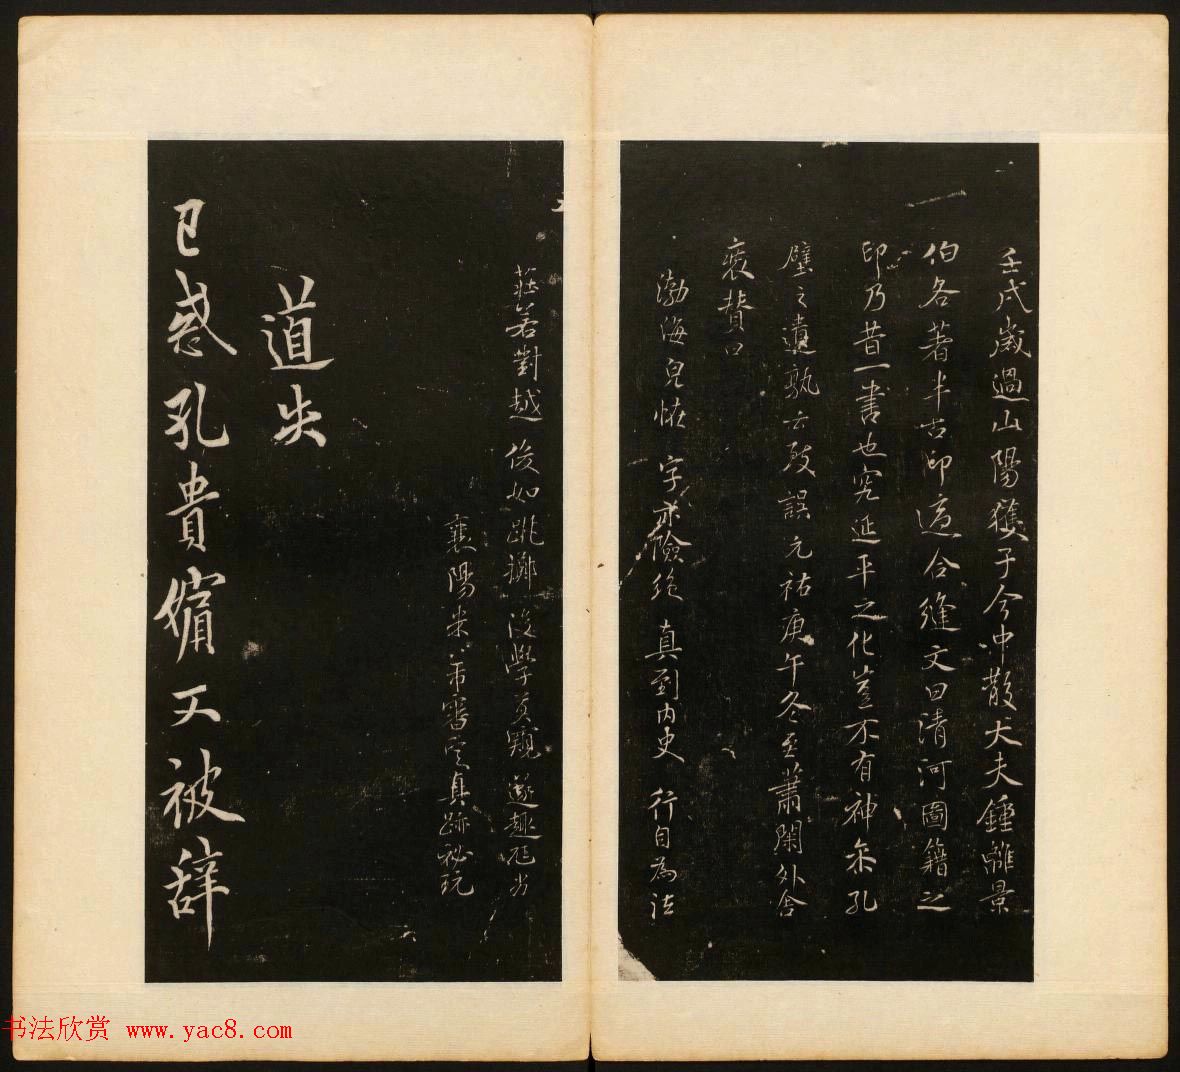 壬戌歲過山陽獲于今中散大夫鍾離景
伯各著半古印適合縫文曰清河圖籍之
印乃昔一書也究延平之化豈不有神尔孔
壁之遺孰云致誤元祐庚午冬至蕭閑外舍
褒賛曰
渤海皃恠 字亦險絶 真到内史 行自為法
莊若對越 俊如跳擲 後學莫窺 遂趣尫劣
襄陽米芾審定真跡秘玩
道失
已惑孔貴 又被辞
书法欣赏 www.yac8.com